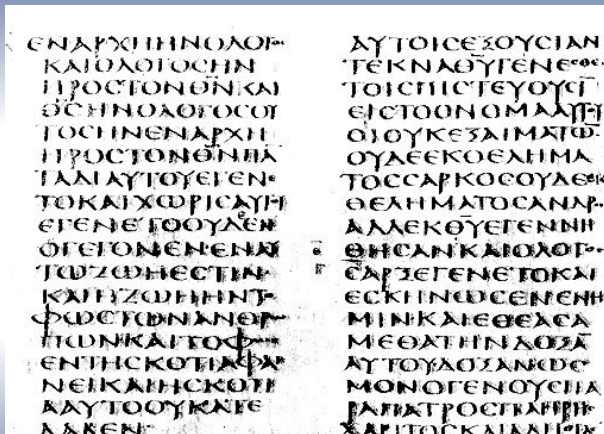 ΕΝΑΡΧΗΗΝΟΛΟΓΟϹ
ΚΑΙΟΛΟΓΟϹΗΝ
ΠΡΟϹΤΟΝΘ̅Ν̅ΚΑΙ
Θ̅Ϲ̅ΗΝΟΛΟΓΟϹΟΥ
ΤΟϹΗΝΕΝΑΡΧΗ
ΠΡΟϹΤΟΝΘ̅Ν̅ΠΑ
ΤΑΔΙΑΥΤΟΥΕΓΕΝΕ
ΤΟΚΑΙΧΩΡΙϹΑΥΤΟΥ
ΕΓΕΝΕΤΟΟΥΔΕΝ
ΟΓΕΓΟΝΕΝΕΝΑΥ
ΤΩΖΩΗΕϹΤΙΝ
ΚΑΙΗΖΩΗΗΝΤΟ
ΦΩϹΤΩΝΑΝΘΡΩ
ΠΩΝΚΑΙΤΟΦΩϹ
ΕΝΤΗϹΚΟΤΙΑΦΑΙ
ΝΕΙΚΑΙΗϹΚΟΤΙ
ΑΑΥΤΟΟΥΚΑΤΕ
ΛΑΒΕΝ
ΑΥΤΟΙϹΕΞΟΥϹΙΑΝ
ΤΕΚΝΑΘ̅Υ̅ΓΕΝΕϹΘΑΙ
ΤΟΙϹΠΙϹΤΕΥΟΥϹΙ
ΕΙϹΤΟΟΝΟΜΑΑΥΤΟΥ
ΟΙΟΥΚΕΞΑΙΜΑΤΩ
ΟΥΔΕΕΚΘΕΛΗΜΑ
ΤΟϹϹΑΡΚΟϹΟΥΔΕΕΚ
ΘΕΛΗΜΑΤΟϹΑΝΔΡΟϹ
ΑΛΛΕΚΘ̅Υ̅ΕΓΕΝΝΗ
ΘΗϹΑΝΚΑΙΟΛΟΓΟϹ
ϹΑΡΞΕΓΕΝΕΤΟΚΑΙ
ΕϹΚΗΝΩϹΕΝΕΝΗ
ΜΙΝΚΑΙΕΘΕΑϹΑ
ΜΕΘΑΤΗΝΔΟΞΑ
ΑΥΤΟΥΔΟΞΑΝΩϹ
ΜΟΝΟΓΕΝΟΥϹΠΑ
ΡΑΠΑΤΡΟϹΠΛΗΡΗϹ
ΧΑΡΙΤΟϹΚΑΙΑΛΗΘΕΙΑϹ